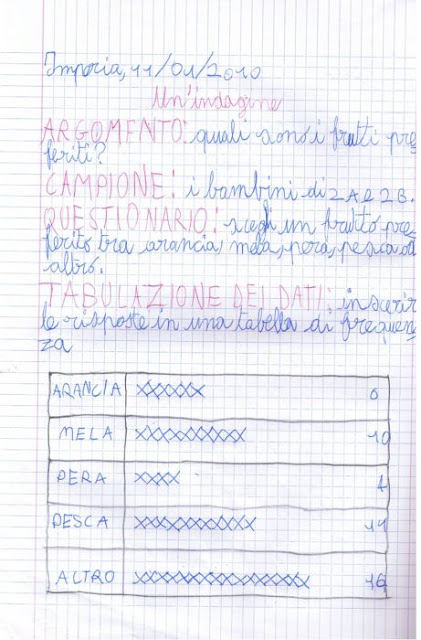 Imperia, 11/01/2010
Un'indagine
ARGOMENTO: quali sono i frutti pre
feriti?
CAMPIONE: i bambini di 2A e 2B.
QUESTIONARIO: scegli un frutto pre
ferito tra arancia, mela, pera, pesca od
altro.
TABULAZIONE DEI DATI: inserir
le risposte in una tabella di frequen
za
ARANCIA XXXXXX 6
MELA XXXXXXXXXX 10
PERA XXXX 4
PESCA XXXXXXXXXXX 11
ALTRO XXXXXXXXXXXXXXXX 16